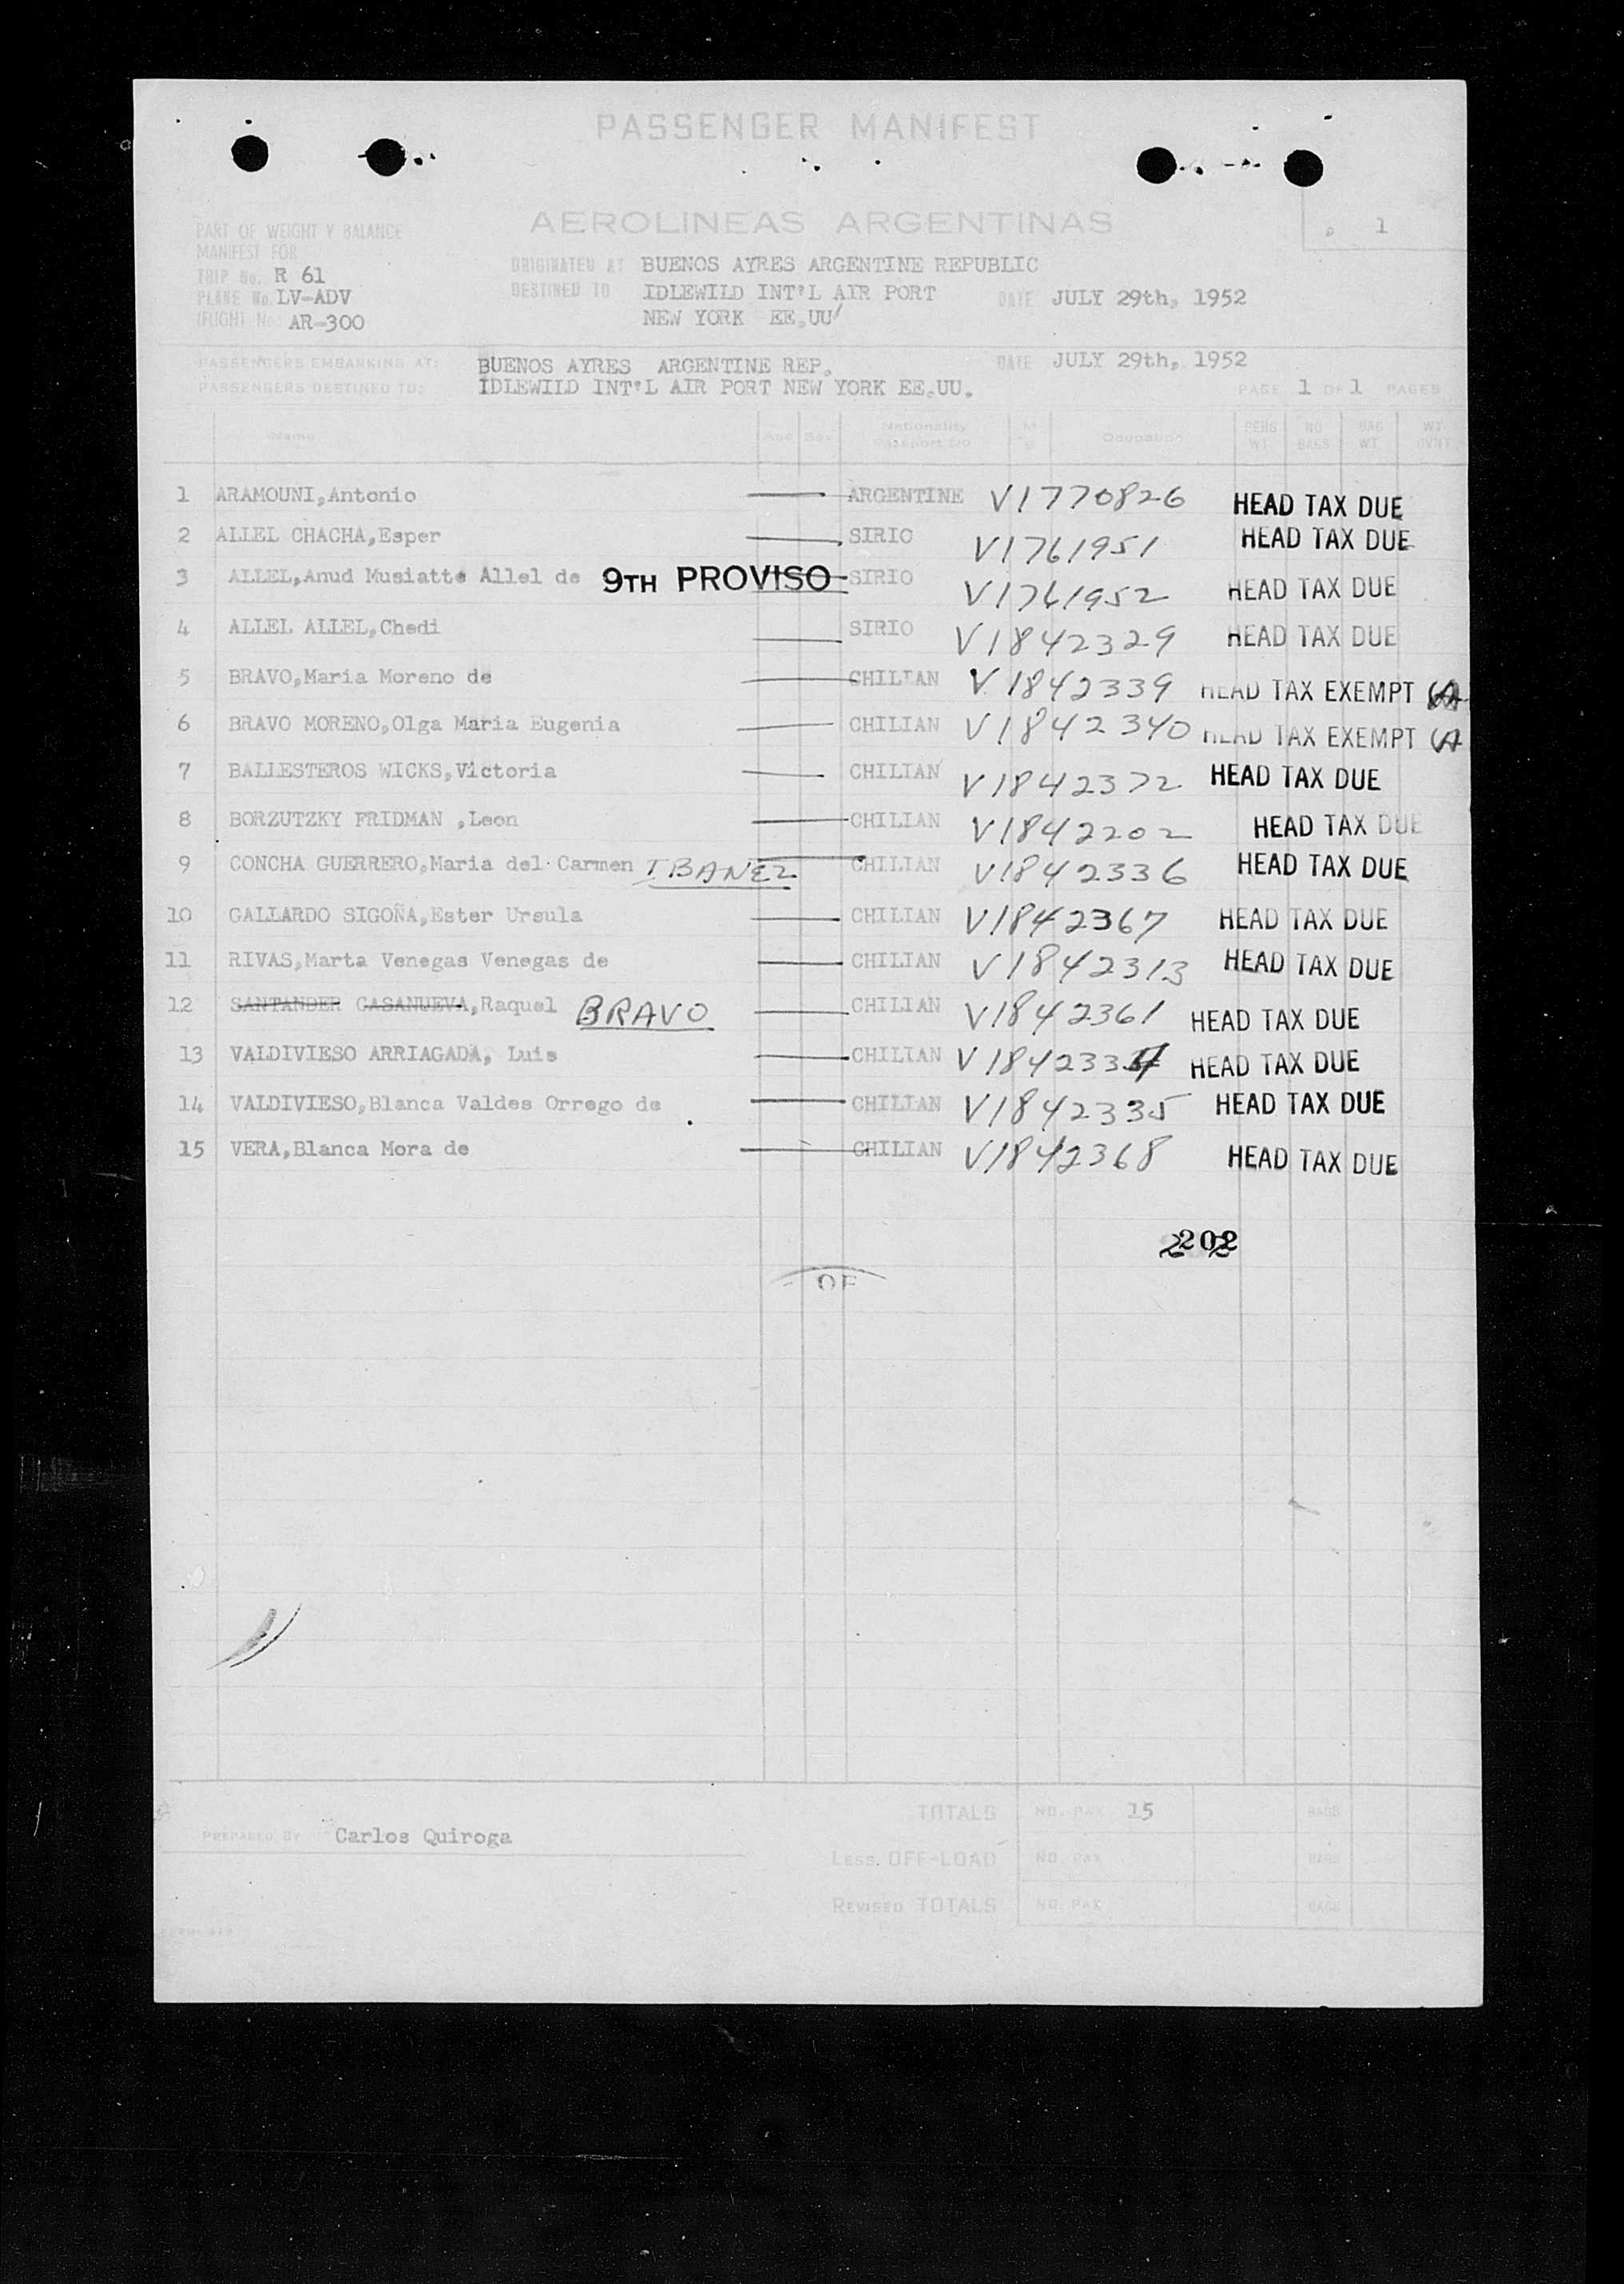 PASSENGER MANIFEST
AEROLINEAS ARGENTINAS
1
PART OF WEIGHT Y BALANCE
MANIFEST FOR
TRIP No. R 61
PLANE No. LV-ADV
FLIGHT No. AR-300
ORIGINATED AT BUENOS AYRES ARGENTINE REPUBLIC
DESTINED TO IDLEWILD INT'L AIR PORT
NEW YORK EE.UU
DATE JULY 29th, 1952
PASSENGERS EMBARKING AT: BUENOS AYRES ARGENTINE REP. DATE JULY 29th, 1952
PASSENGERS DESTINED TO: IDLEWILD INT'L AIR PORT NEW YORK EE.UU. PAGE 1 OF 1 PAGES
Name Age Sex Nationality Passport No M S Ocupation PERS WT. NO BAGS BAG WT WT.
1 ARAMOUNI,Antonio ARGENTINE V1770826 HEAD TAX DUE
2 ALLEL CHACHA,Esper SIRIO V1761951 HEAD TAX DUE
3 ALLEL,Anud Musiatte Allel de 9TH PROVISO SIRIO V1761952 HEAD TAX DUE
4 ALLEL ALLEL,Chedi SIRIO V1842329 HEAD TAX DUE
5 BRAVO,Maria Moreno de CHILIAN V1842339 HEAD TAX EXEMPT
6 BRAVO MORENO,Olga Maria Eugenia CHILIAN V1842340 HEAD TAX EXEMPT
7 BALLESTEROS WICKS,Victoria CHILIAN V1842372 HEAD TAX DUE
8 BORZUTZKY FRIDMAN ,Leon CHILIAN V1842202 HEAD TAX DUE
9 CONCHA GUERRERO,Maria del Carmen IBANEZ CHILIAN V1842336 HEAD TAX DUE
10 GALLARDO SIGOÑA,Ester Ursula CHILIAN V1842367 HEAD TAX DUE
11 RIVAS,Marta Venegas Venegas de CHILIAN V1842313 HEAD TAX DUE
12 SANTANDER CASANUEVA,Raquel BRAVO CHILIAN V1842361 HEAD TAX DUE
13 VALDIVIESO ARRIAGADA, Luis CHILIAN V1842334 HEAD TAX DUE
14 VALDIVIESO,Blanca Valdes Orrego de CHILIAN V1842335 HEAD TAX DUE
15 VERA,Blanca Mora de CHILIAN V1842368 HEAD TAX DUE
2202
OF
TOTALS NO. PAX 15 BAGS
PREPARED BY Carlos Quiroga
LESS. OFF-LOAD NO PAX BAGS
REVISED TOTALS NO PAX BAGS